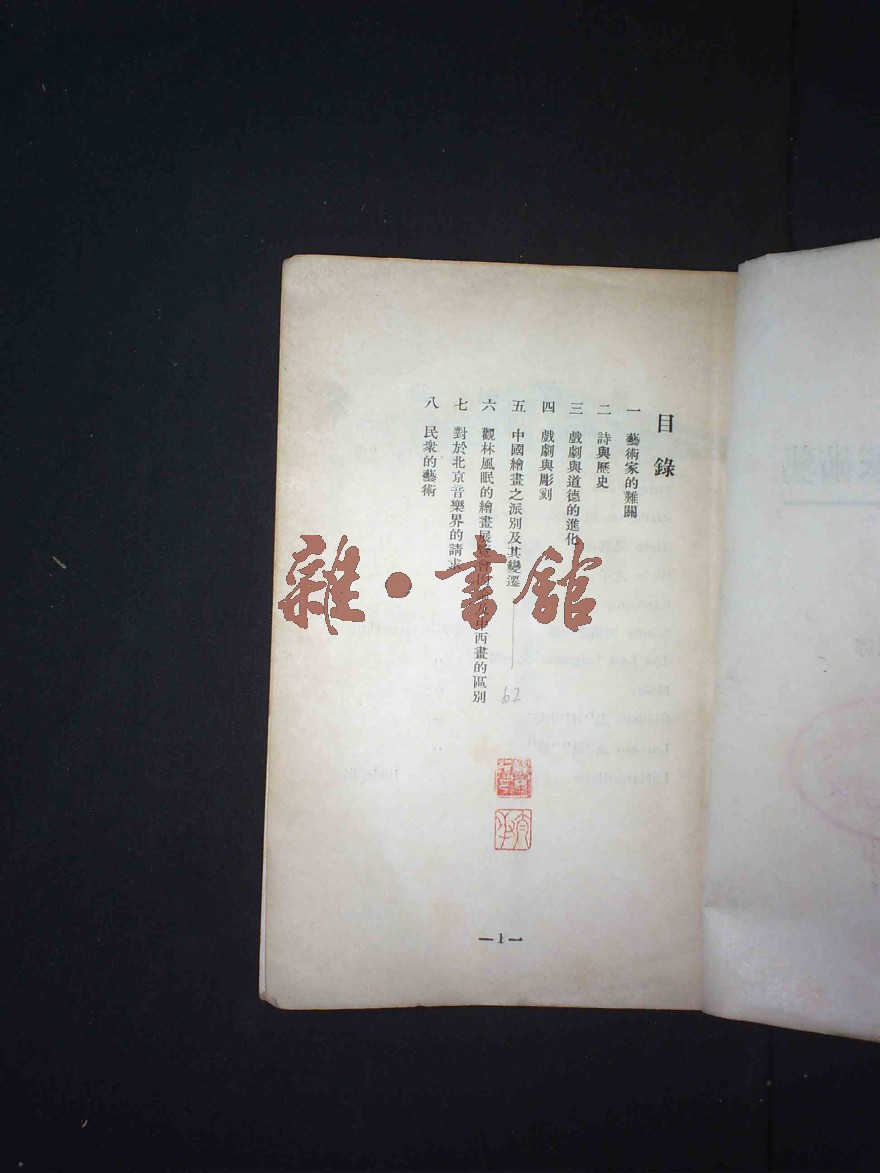 目錄
一 藝術家的難關
二 詩與歷史
三 戲劇與道德的進化
四 戲劇與彫刻
五 中國繪畫之派別及其變遷
62
六 觀林風眠的繪畫展覽會 中西畫的區別
七 對於北京音樂界的請求
八 民衆的藝術
—1—
雜·書館